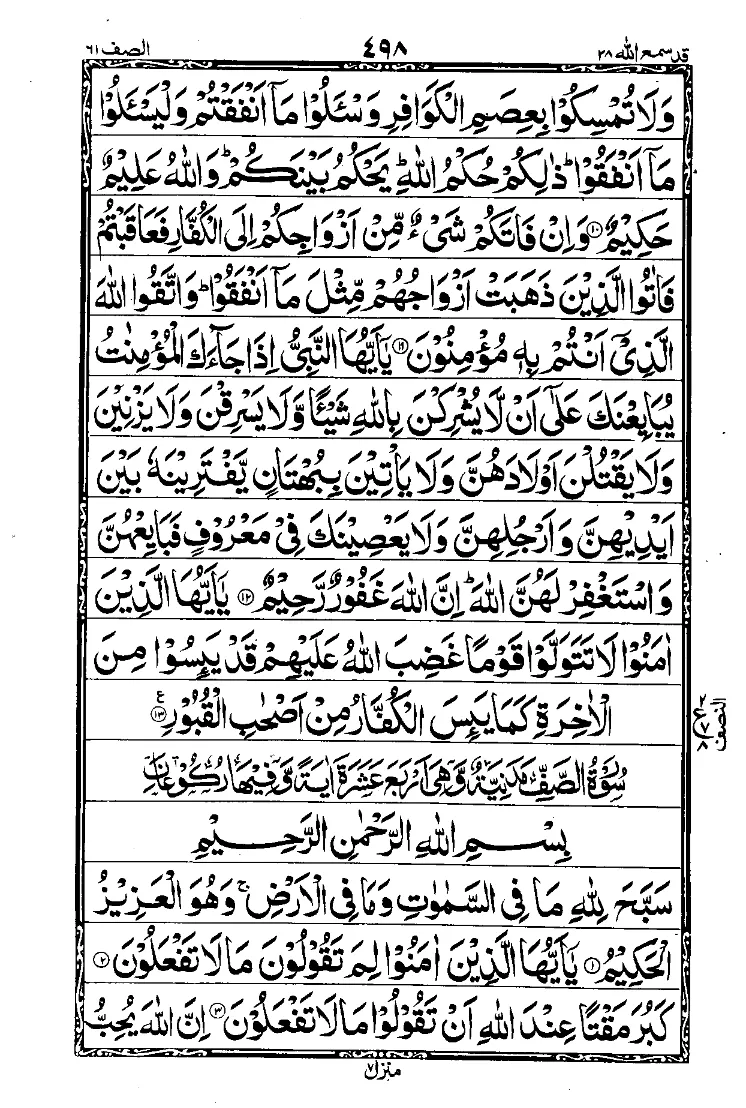 قد سمع الله ٢٨ ٤٩٨ الصف ٦١
وَلَا تُمْسِكُوْا بِعِصَمِ الْكَوَافِرِ وَسْـَٔلُوْا مَآ اَنْفَقْتُمْ وَلْيَسْـَٔلُوْا
مَآ اَنْفَقُوْا ؕ ذٰلِكُمْ حُكْمُ اللّٰهِ ؕ يَحْكُمُ بَيْنَكُمْ ؕ وَاللّٰهُ عَلِيْمٌ
حَكِيْمٌ ۝١٠ وَاِنْ فَاتَكُمْ شَىْءٌ مِّنْ اَزْوَاجِكُمْ اِلَى الْكُفَّارِ فَعَاقَبْتُمْ
فَاٰتُوا الَّذِيْنَ ذَهَبَتْ اَزْوَاجُهُمْ مِّثْلَ مَآ اَنْفَقُوْا ؕ وَاتَّقُوا اللّٰهَ
الَّذِىْٓ اَنْتُمْ بِهٖ مُؤْمِنُوْنَ ۝١١ يٰٓاَيُّهَا النَّبِىُّ اِذَا جَآءَكَ الْمُؤْمِنٰتُ
يُبَايِعْنَكَ عَلٰٓى اَنْ لَّا يُشْرِكْنَ بِاللّٰهِ شَيْـًٔا وَّلَا يَسْرِقْنَ وَلَا يَزْنِيْنَ
وَلَا يَقْتُلْنَ اَوْلَادَهُنَّ وَلَا يَاْتِيْنَ بِبُهْتَانٍ يَّفْتَرِيْنَهٗ بَيْنَ
اَيْدِيْهِنَّ وَاَرْجُلِهِنَّ وَلَا يَعْصِيْنَكَ فِىْ مَعْرُوْفٍ فَبَايِعْهُنَّ
وَاسْتَغْفِرْ لَهُنَّ اللّٰهَ ؕ اِنَّ اللّٰهَ غَفُوْرٌ رَّحِيْمٌ ۝١٢ يٰٓاَيُّهَا الَّذِيْنَ
اٰمَنُوْا لَا تَتَوَلَّوْا قَوْمًا غَضِبَ اللّٰهُ عَلَيْهِمْ قَدْ يَىِٕسُوْا مِنَ
الْاٰخِرَةِ كَمَا يَىِٕسَ الْكُفَّارُ مِنْ اَصْحٰبِ الْقُبُوْرِ ۝١٣ ع
٢ ع ٧ ٨ النصف
سُوْرَةُ الصَّفِّ مَدَنِيَّةٌ وَّهِىَ اَرْبَعَ عَشْرَةَ اٰيَةً وَّفِيْهَا رُكُوْعَانِ
بِسْمِ اللّٰهِ الرَّحْمٰنِ الرَّحِيْمِ
سَبَّحَ لِلّٰهِ مَا فِى السَّمٰوٰتِ وَمَا فِى الْاَرْضِ ۚ وَهُوَ الْعَزِيْزُ
الْحَكِيْمُ ۝١ يٰٓاَيُّهَا الَّذِيْنَ اٰمَنُوْا لِمَ تَقُوْلُوْنَ مَا لَا تَفْعَلُوْنَ ۝٢
كَبُرَ مَقْتًا عِنْدَ اللّٰهِ اَنْ تَقُوْلُوْا مَا لَا تَفْعَلُوْنَ ۝٣ اِنَّ اللّٰهَ يُحِبُّ
منزل ٧